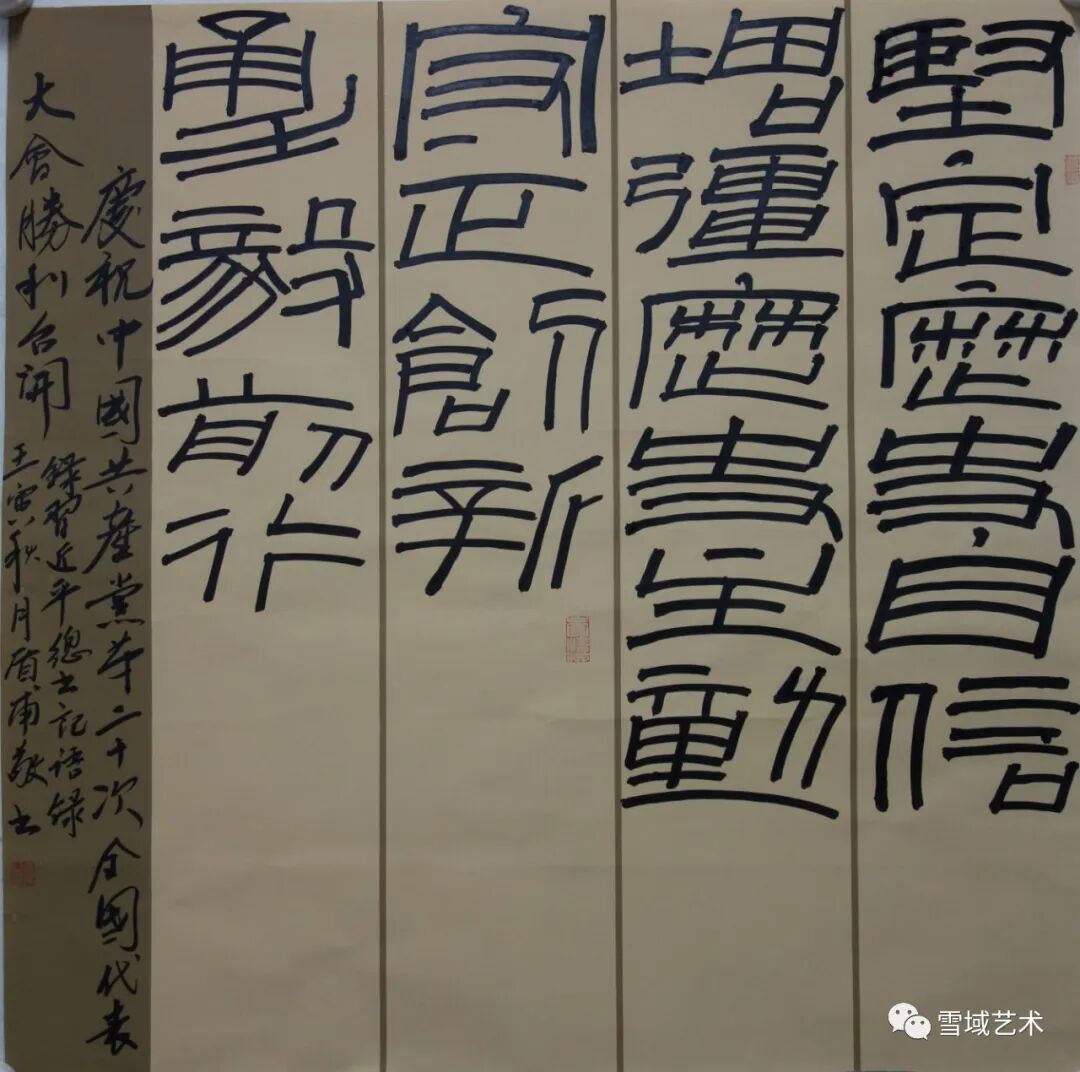 堅定歷史自信
增彊歷史主動
守正創新
勇毅前行
慶祝中國共產黨第二十次全國代表
大會勝利召開
錄習近平總书記語錄
壬寅秋月盾甫敬书
雪域艺术